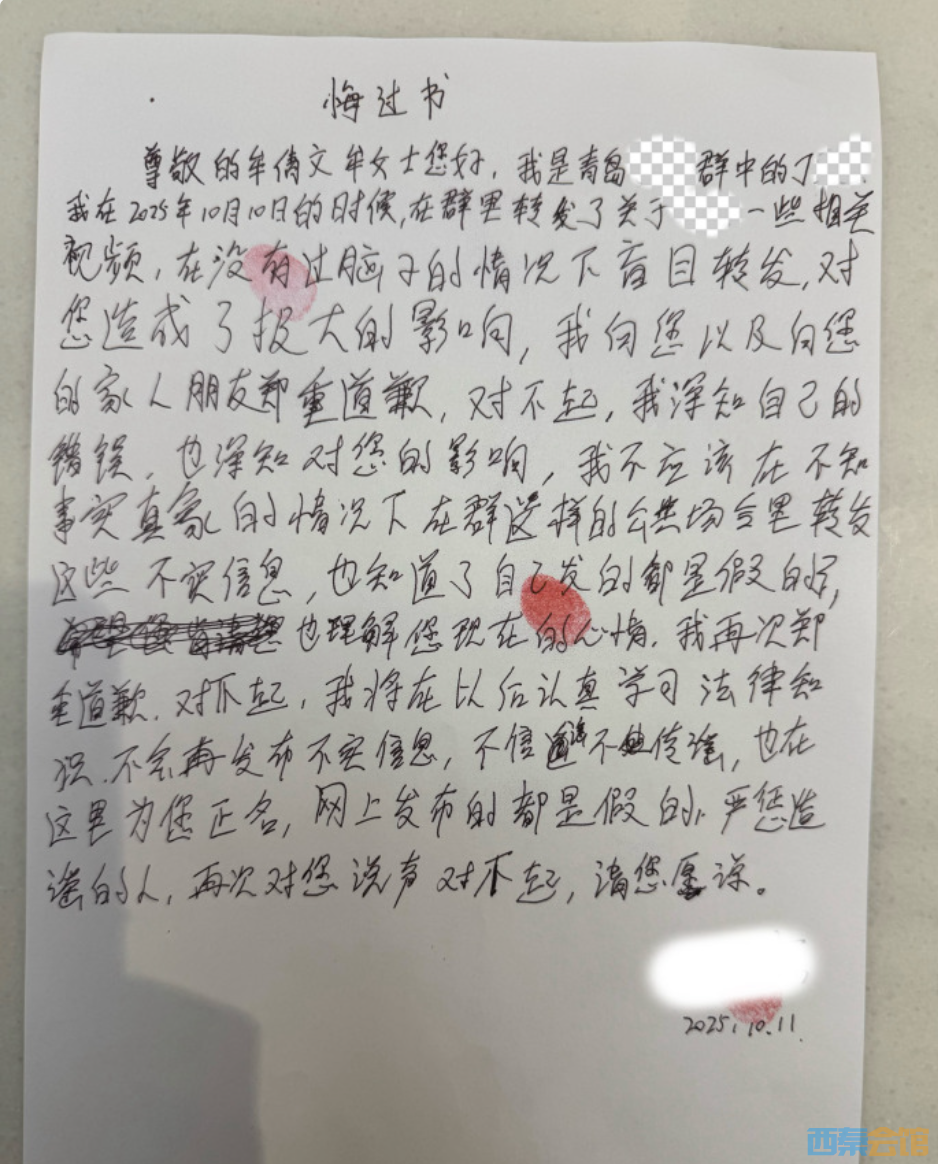 悔过书
尊敬的牟倩文牟女士您好，我是青岛 群中的丁
我在2025年10月10日的时候，在群里转发了关于 一些相关
视频，在没有过脑子的情况下盲目转发，对
您造成了极大的影响，我向您以及向您
的家人朋友郑重道歉，对不起，我深知自己的
错误，也深知对您的影响，我不应该在不知
事实真象的情况下在群这样的公共场合里转发
这些不实信息，也知道了自己发的都是假的，
也理解您现在的心情，我再次郑
重道歉，对不起，我将在以后认真学习法律知
识，不会再发布不实信息，不信 不 传谣，也在
这里为您正名，网上发布的都是假的， 您造
谣的人，再次对您说声对不起，请您 谅。
2025.10.11
西祠会馆